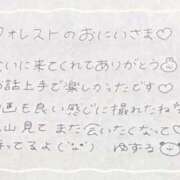 フォレストのおにいさま♡
いに来てくれてありがとう
お話上手で楽しかったです♡
画も良い感じに撮れたね
山見てまた会いたくなって
待ってるよ(´˘`) ゆずる